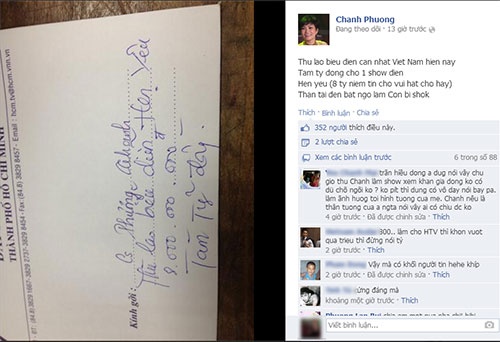 THÀNH PHỐ HỒ CHÍ MINH
Kính gởi:
Cs Phương Thanh
Thù lao biểu diễn Hẹn Yêu
8.000.000.000
Tám Tỷ đồng.
Chanh Phuong
Đang theo dõi · 13 giờ trước ·
Thu lao bieu dien cao nhat Viet Nam hien nay
Tam ty dong cho 1 show dien
Hen yeu (8 ty niem tin cho vui hat cho hay)
Than tai den bat ngo lam Con bi shok
Thích · Bình luận · Chia sẻ
352 người thích điều này.
2 lượt chia sẻ
Xem các bình luận trước
6 trong số 88
trăn hiểu dong a dug nói vậy chu
gio thu Chanh làm show xem khan gia dong ko có
dù chỗ ngồi ko ? ko pít thi dung có vo day nói bay pa.
làm ảnh huog toi hình tuong cua me. Chanh nếu là
thân tuong cua a ngta nói vây ai có chiu dc ko
4 giờ trước · Đã được chỉnh sửa · Thích
300.. làm cho HTV thì khon vuot
qua trieu thì đừng nói tỷ
2 giờ trước · Thích
Vậy mà có khối người tin hehe khíp
2 giờ trước · Đã được chỉnh sửa · Thích
cứng đáng mà
khoảng một giờ trước · Thích
Viết bình luận...